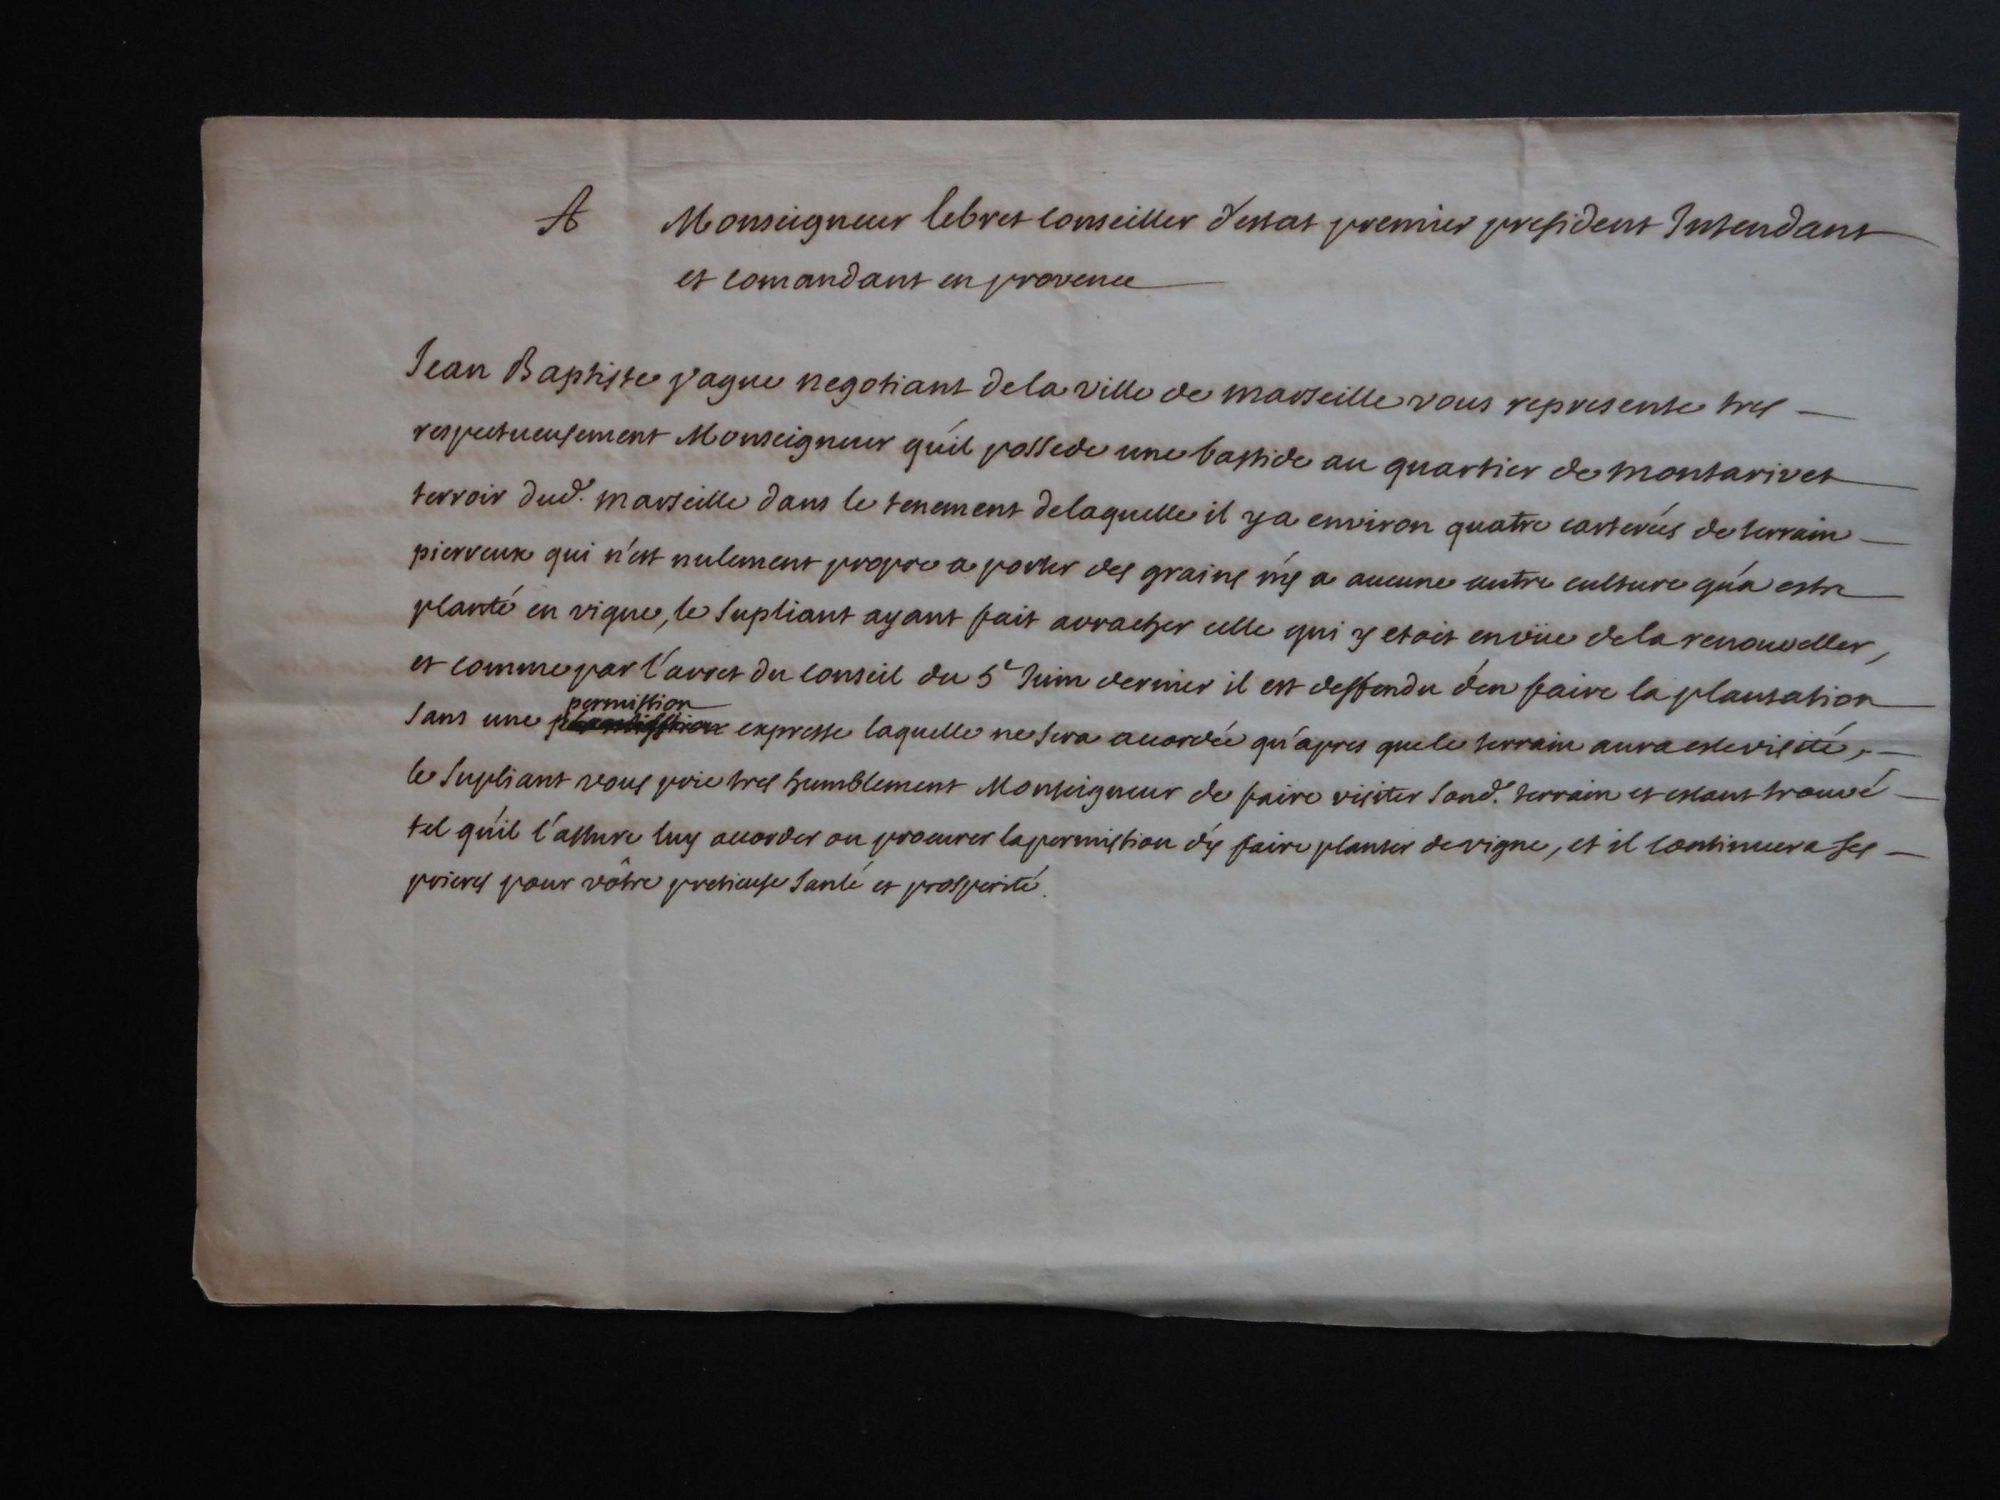 A Monseigneur lebret conseiller d'estat premier president Intendant
et comandant en provence
Jean Baptiste pague negotiant de la ville de marseille vous represente tres
respectueusement Monseigneur qu'il possede une bastide au quartier de montarivet
terroir dud.t marseille dans le tenement de laquelle il y a environ quatre carterées de terrain
pierreux qui n'est nulement propre a porter des grains n'y a aucune autre culture qu'a estre
planté en vigne, le supliant ayant fait arracher celle qui y etoit en vüe de la renouveller,
et comme par l'arret du conseil du 5e Juin dernier il est deffendu d'en faire la plantation
permission
sans une expresse laquelle ne sera acordée qu'apres que le terrain aura este visité,
le supliant vous prie tres humblement Monseigneur de faire visiter sond.t terrain et estant trouvé
tel qu'il l'assure luy acorder ou procurer la permission d'y faire planter de vigne, et il continuera ses
prieres pour vôtre pretieuse santé et prosperité.